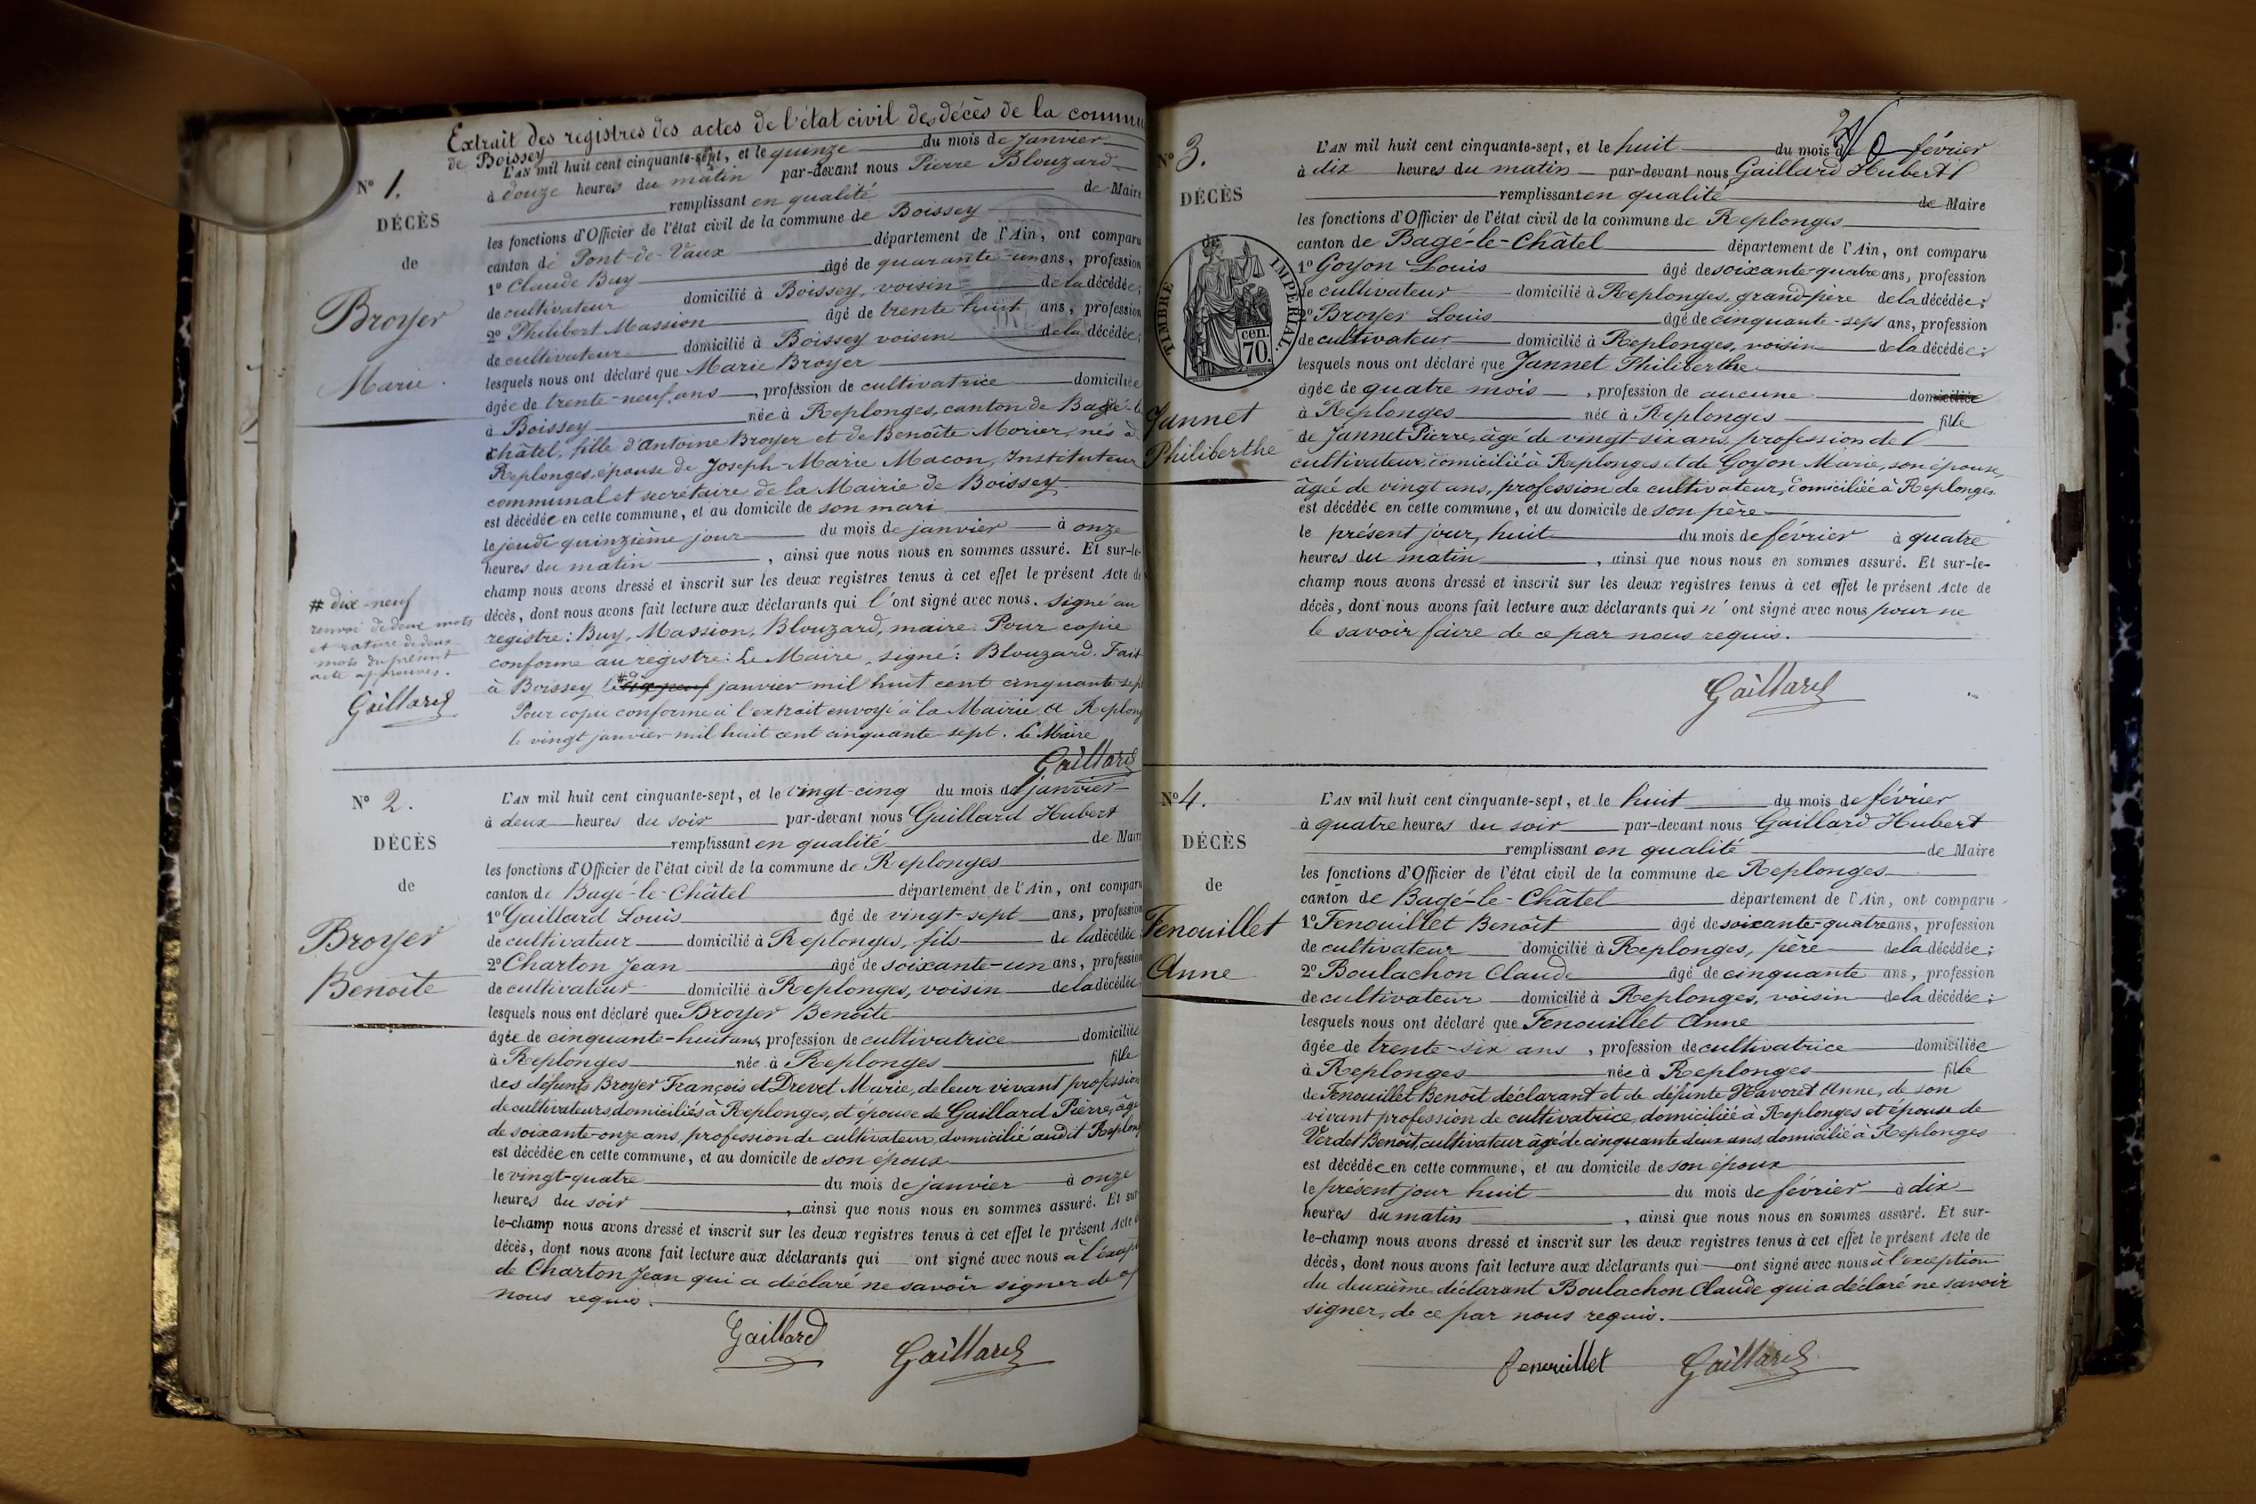 Extrait des registres des actes de l'état civil des décès de la commu
de Boissey
L'AN mil huit cent cinquante-sept, et le quinze du mois de Janvier
à douze heures du matin par-devant nous Pierre Blouzard
remplissant en qualité de Maire
les fonctions d'Officier de l'état civil de la commune de Boissey
canton de Pont-de-Vaux département de l'Ain, ont comparu
1° Claude Buy âgé de quarante-un ans, profession
de cultivateur domicilié à Boissey, voisin de la décédée;
2° Philibert Massion âgé de trente huit ans, profession
de cultivateur domicilié à Boissey voisin de la décédée;
lesquels nous ont déclaré que Marie Broyer
âgée de trente-neuf ans, profession de cultivatrice domiciliée
à Boissey née à Replonges, canton de Bagé-le
châtel, fille d'Antoine Broyer et de Benoîte Morier, nés à
Replonges, épouse de Joseph-Marie Macon, Instituteur
communal et secrétaire de la Mairie de Boissey
est décédée en cette commune, et au domicile de son mari
le jeudi quinzième jour du mois de janvier à onze
heures du matin, ainsi que nous nous en sommes assuré. Et sur-le-
champ nous avons dressé et inscrit sur les deux registres tenus à cet effet le présent Acte de
décès, dont nous avons fait lecture aux déclarants qui l'ont signé avec nous. Signé au
registre: Buy, Massion, Blouzard, maire. Pour copie
conforme au registre: Le Maire, signé: Blouzard. Fait
à Boissey le # dix neuf janvier mil huit cent cinquante-sept
Pour copie conforme à l'extrait envoyé à la Mairie de Replong
le vingt janvier mil huit cent cinquante-sept. Le Maire
Gaillard
N° 1.
DÉCÈS
de
Broyer
Marie.
# dix-neuf
renvoi de deux mots
et rature de deux
mots du présent
acte approuvés.
Gaillard
N° 2.
DÉCÈS
de
Broyer
Benoîte
L'AN mil huit cent cinquante-sept, et le vingt-cinq du mois de janvier
à deux heures du soir par-devant nous Gaillard Hubert
remplissant en qualité de Maire
les fonctions d'Officier de l'état civil de la commune de Replonges
canton de Bagé-le-Châtel département de l'Ain, ont comparu
1° Gaillard Louis âgé de vingt-sept ans, profession
de cultivateur domicilié à Replonges, fils de la décédée
2° Charton Jean âgé de soixante-un ans, profession
de cultivateur domicilié à Replonges, voisin de la décédée
lesquels nous ont déclaré que Broyer Benoîte
âgée de cinquante-huit ans, profession de cultivatrice domiciliée
à Replonges née à Replonges fille
des défunts Broyer François et Drevet Marie, de leur vivant profession
de cultivateurs, domiciliés à Replonges, et épouse de Gaillard Pierre, âgé
de soixante-onze ans, profession de cultivateur, domicilié audit Replong
est décédée en cette commune, et au domicile de son époux
le vingt-quatre du mois de janvier à onze
heures du soir, ainsi que nous nous en sommes assuré. Et sur
le-champ nous avons dressé et inscrit sur les deux registres tenus à cet effet le présent Acte de
décès, dont nous avons fait lecture aux déclarants qui ont signé avec nous à l'excep
de Charton Jean qui a déclaré ne savoir signer de
nous requis.
Gaillard Gaillard
N° 3.
DÉCÈS
de
Jannet
Philiberthe
TIMBRE IMPÉRIAL.
70 cen.
L'AN mil huit cent cinquante-sept, et le huit du mois de février
à dix heures du matin par-devant nous Gaillard Hubert
remplissant en qualité de Maire
les fonctions d'Officier de l'état civil de la commune de Replonges
canton de Bagé-le-Châtel département de l'Ain, ont comparu
1° Goyon Louis âgé de soixante-quatre ans, profession
de cultivateur domicilié à Replonges, grand-père de la décédée;
2° Broyer Louis âgé de cinquante-sept ans, profession
de cultivateur domicilié à Replonges, voisin de la décédée;
lesquels nous ont déclaré que Jannet Philiberthe
âgée de quatre mois, profession de aucune domiciliée
à Replonges née à Replonges fille
de Jannet Pierre, âgé de vingt-six ans, profession de
cultivateur, domicilié à Replonges et de Goyon Marie, son épouse,
âgée de vingt ans, profession de cultivateur, domiciliée à Replonges
est décédée en cette commune, et au domicile de son père
le présent jour, huit du mois de février à quatre
heures du matin, ainsi que nous nous en sommes assuré. Et sur-le-
champ nous avons dressé et inscrit sur les deux registres tenus à cet effet le présent Acte de
décès, dont nous avons fait lecture aux déclarants qui n'ont signé avec nous pour ne
le savoir faire de ce par nous requis.
Gaillard
N° 4.
DÉCÈS
de
Fenouillet
Anne
L'AN mil huit cent cinquante-sept, et le huit du mois de février
à quatre heures du soir par-devant nous Gaillard Hubert
remplissant en qualité de Maire
les fonctions d'Officier de l'état civil de la commune de Replonges
canton de Bagé-le-Châtel département de l'Ain, ont comparu
1° Fenouillet Benoît âgé de soixante-quatre ans, profession
de cultivateur domicilié à Replonges, père de la décédée;
2° Boulachon Claude âgé de cinquante ans, profession
de cultivateur domicilié à Replonges, voisin de la décédée;
lesquels nous ont déclaré que Fenouillet Anne
âgée de trente-six ans, profession de cultivatrice domiciliée
à Replonges née à Replonges fille
de Fenouillet Benoît déclarant et de défunte Navoret Anne, de son
vivant profession de cultivatrice, domiciliée à Replonges et épouse de
Verdet Benoît, cultivateur âgé de cinquante deux ans, domicilié à Replonges
est décédée en cette commune, et au domicile de son époux
le présent jour huit du mois de février à dix
heures du matin, ainsi que nous nous en sommes assuré. Et sur-
le-champ nous avons dressé et inscrit sur les deux registres tenus à cet effet le présent Acte de
décès, dont nous avons fait lecture aux déclarants qui ont signé avec nous à l'exception
du deuxième déclarant Boulachon Claude qui a déclaré ne savoir
signer, de ce par nous requis.
fenouillet Gaillard